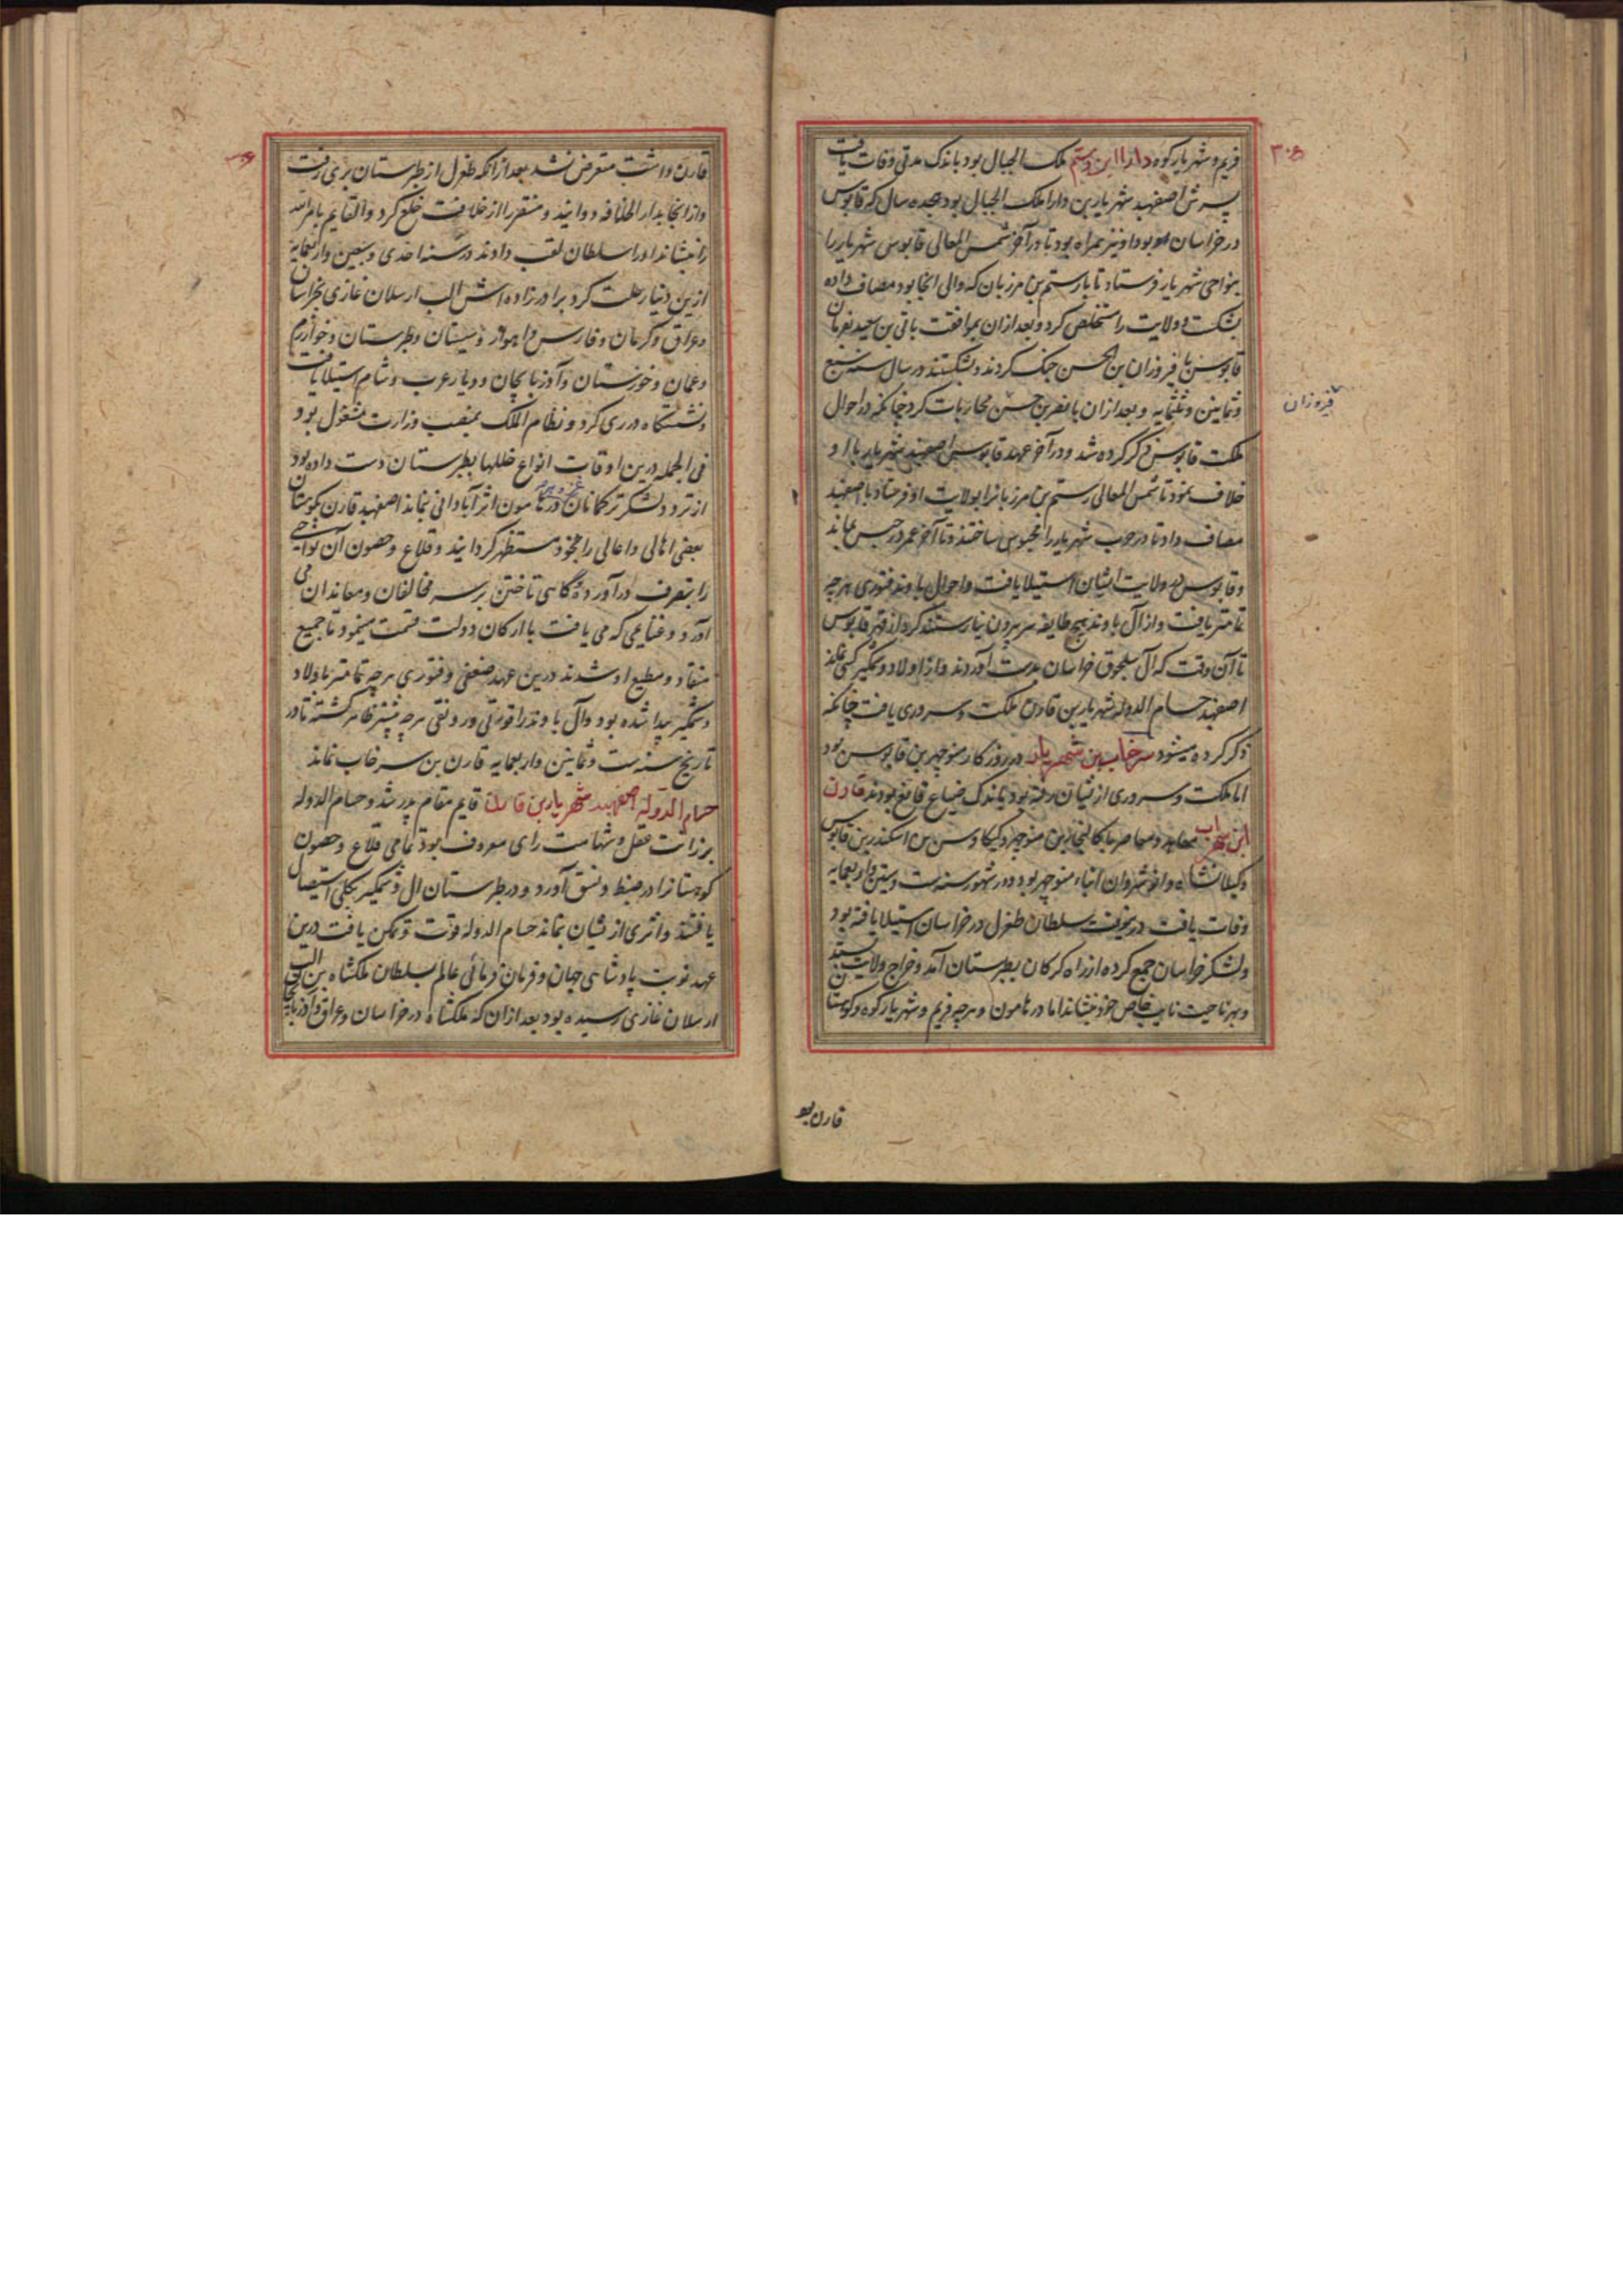 ۳۰۵
فریم و شهریار کوه دارا ابن رستم ملک الجبال بود باندک مدتی وفات یافت
پسرش اصفهبد شهریار بن دارا ملک الجبال بود هجده سال که قابوس
در خراسان بود او نیز همراه بود تا در آخر شمس المعالی قابوس شهریار را
بنواحی شهریار فرستاد تا با رستم بن مرزبان که والی انجا بود مصاف داده
بشکست و ولایت را مستخلص کرد و بعد ازان بموافقت باتی بن سعید بفرمان
قابوس با فیروزان بن الحسن جنک کردند و بشکستند در سال سنه سبع
فیروزان
و ثمانین و ثلثمایه و بعد ازان با نصر بن حسن محاربات کرد چنانکه در احوال
ملکت قابوس ذکر کرده شد و در آخر عهد قابوس اصفهبد شهریار با او
خلاف نمود تا شمس المعالی رستم بن مرزبانرا بولایت او فرستاد با اصفهبد
مصاف داد تا در حرب شهریار را محبوس ساختند و تا آخر عمر در حبس بماند
و قابوس بر ولایت ایشان استیلا یافت و احوال باوند فتوری هر چه
تمامتر یافت و از آل باوند هیچ طایفه سر بیرون نیارستند کرد از قهر قابوس
تا آن وقت که آل سلجوق خراسان بدست آوردند و از اولاد وشمکیر کسی نماند
اصفهبد حسام الدوله شهریار بن قارن ملکت و سروری یافت چنانکه
ذکر کرده میشود سرخاب بن شهریار در روزکار منوچهر بن قابوس بود
اما ملکت و سروری از ایشان رفته بود باندک ضیاع قانع بودند قارن
ابن سرخاب معاهد و معاصر باکالیجار بن منوچهر و کیکاوس بن اسکندر بن قابوس
و کیلانشاه و انوشروان ابناء منوچهر بود و در شهور سنه ست و ستین و اربعمایه
وفات یافت درینوقت سلطان طغرل در خراسان استیلا یافته بود
و لشکر خراسان جمع کرده از راه کرکان بطبرستان آمد و خراج ولایت بستد
و بهر ناحیت نایب خاص خود بنشاند اما در هامون و هر چه فریم و شهریار کوه و کوهستان
قارن بو
قارن داشت متعرض نشد بعد از انکه طغرل از طبرستان بری رفت
و از انجا بدار الخلافه دوانید و مستقر را از خلافت خلع کرد و القایم بامر الله
را بنشاند او را سلطان لقب دادند در سنه احدی و سبعین و اربعمایه
ازین دنیا رحلت کرد برادر زاده اش الب ارسلان غازی بخراسان
و عراق و کرمان و فارس و اهواز و سیستان و طبرستان و خوارزم
و عمان و خوزستان و آذربایجان و دیار عرب و شام استیلا یافت
و نشستکاه در ری کرد و نظام الملک بمنصب وزارت مشغول بود
فی الجمله درین اوقات انواع خللها بطبرستان دست داده بود
از تردد لشکر ترکمانان در هامون اثر آبادانی نماند اصفهبد قارن بکوهستان
بعضی اهالی و اعالی را بخود مستظهر کردانید و قلاع و حصون آن نواحی
را بتصرف در آورد و کاهی تاختن بر سر مخالفان و معاندان می
آورد و غنایمی که می یافت با ارکان دولت قسمت مینمود تا جمیع
منقاد و مطیع او شدند درین عهد ضعفی و فتوری هر چه تمامتر باولاد
وشمکیر پیدا شده بود و آل باوند را قوتی و رونقی هر چه بیشتر ظاهر کشته تا در
تاریخ سنه ست و ثمانین و اربعمایه قارن بن سرخاب نماند
حسام الدوله اصفهبد شهریار بن قارن قایم مقام پدر شد و حسام الدوله
برزانت عقل و شهامت رای معروف بود تمامی قلاع و حصون
کوهستانرا در ضبط و نسق آورد و در طبرستان ال وشمکیر بکلی استیصال
یافتند و اثری از ایشان نماند حسام الدوله قوت و تمکن یافت درین
عهد نوبت پادشاهی جهان و فرمان فرمائی عالم بسلطان ملکشاه بن الب
ارسلان غازی رسیده بود بعد ازان که ملکشاه در خراسان و عراق و آذربایجان